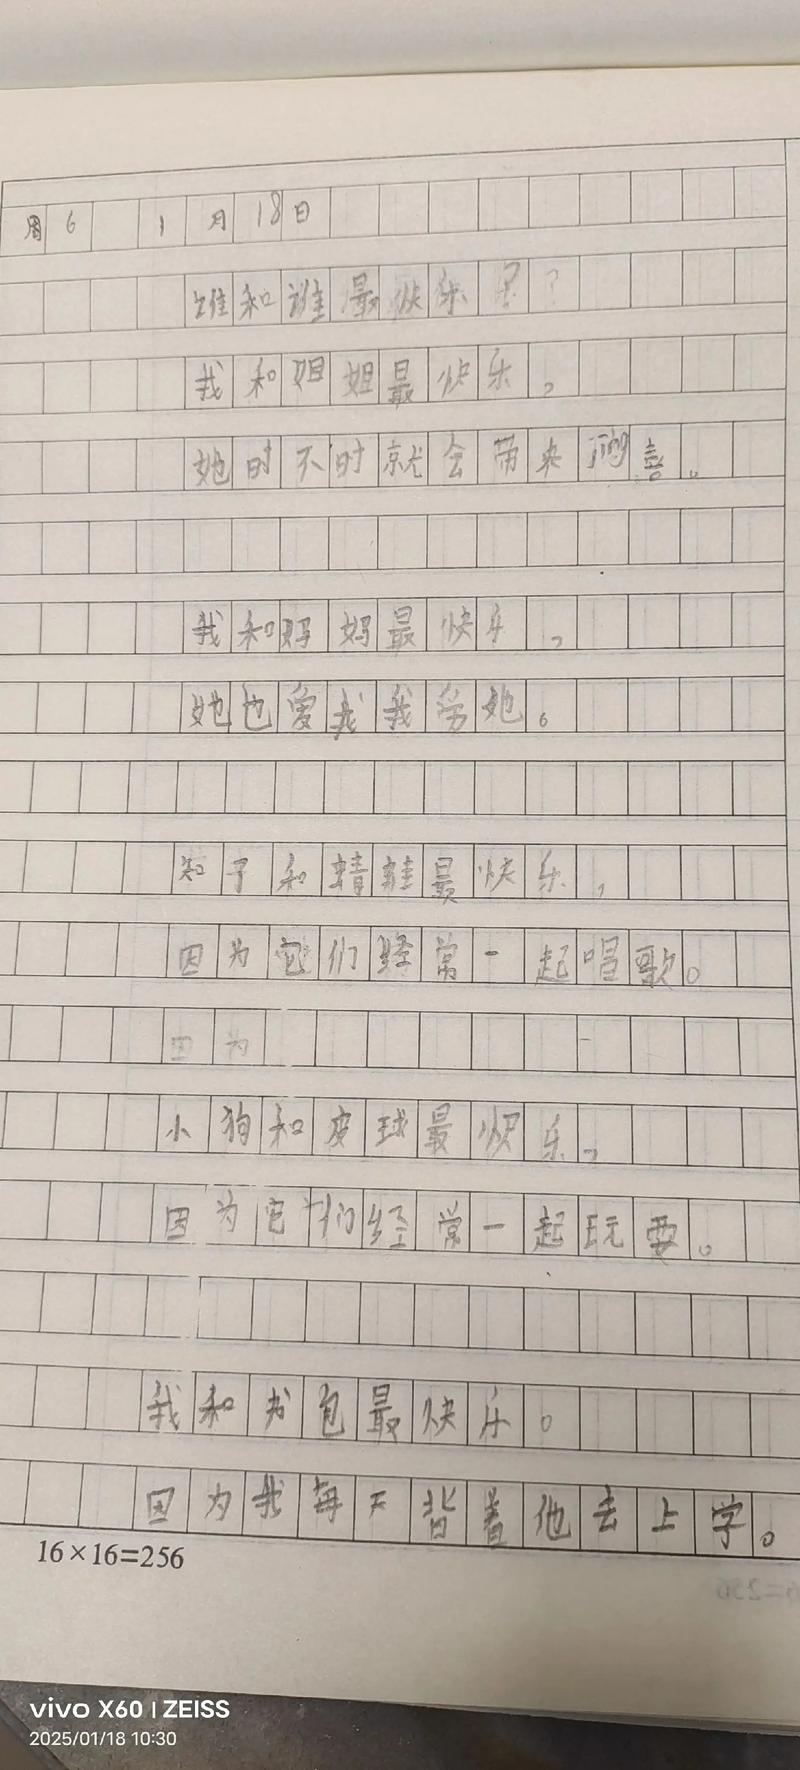 周6 1月18日
谁和谁最快乐?
我和姐姐最快乐，
她时不时就会带来惊喜。
我和妈妈最快乐，
她也爱我我爱她。
知了和青蛙最快乐，
因为它们经常一起唱歌。
因为
小狗和皮球最快乐，
因为它们经常一起玩耍。
我和书包最快乐。
因为我每天背着他去上学。
16×16=256
vivo X60 | ZEISS
2025/01/18 10:30